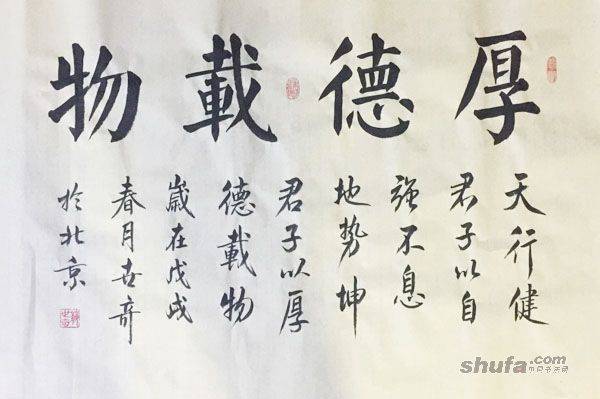 厚德載物
天行健
君子以自
強不息
地势坤
君子以厚
德載物
歲在戊戌
春月古奇
於北京
shufa.com